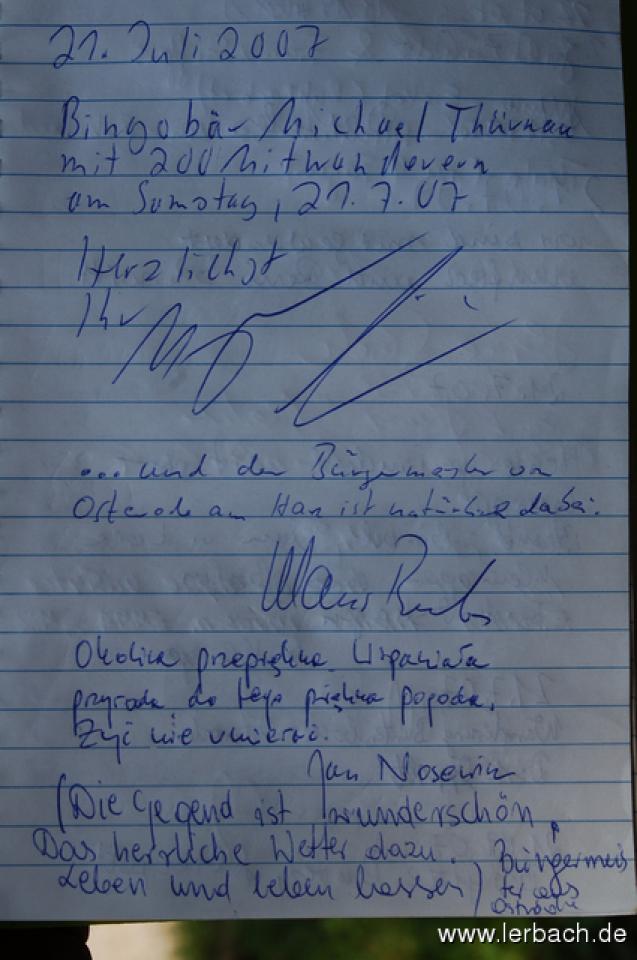 21. Juli 2007
Bingobär Michael Thürnau
mit 200 Mitwanderern
am Samstag, 21.7.07
Herzlichst
Ihr
... und der Bürgermeister von
Osterode am Harz ist natürlich dabei.
Klaus Becker
Okolica przepiękna. Wspaniała
przyroda do tego piękna pogoda.
Żyć nie umierać.
Jan Nosewicz
(Die Gegend ist wunderschön.
Das herrliche Wetter dazu.
Leben und leben lassen)
Bürgermeis
ter aus
Ostróda
www.lerbach.de